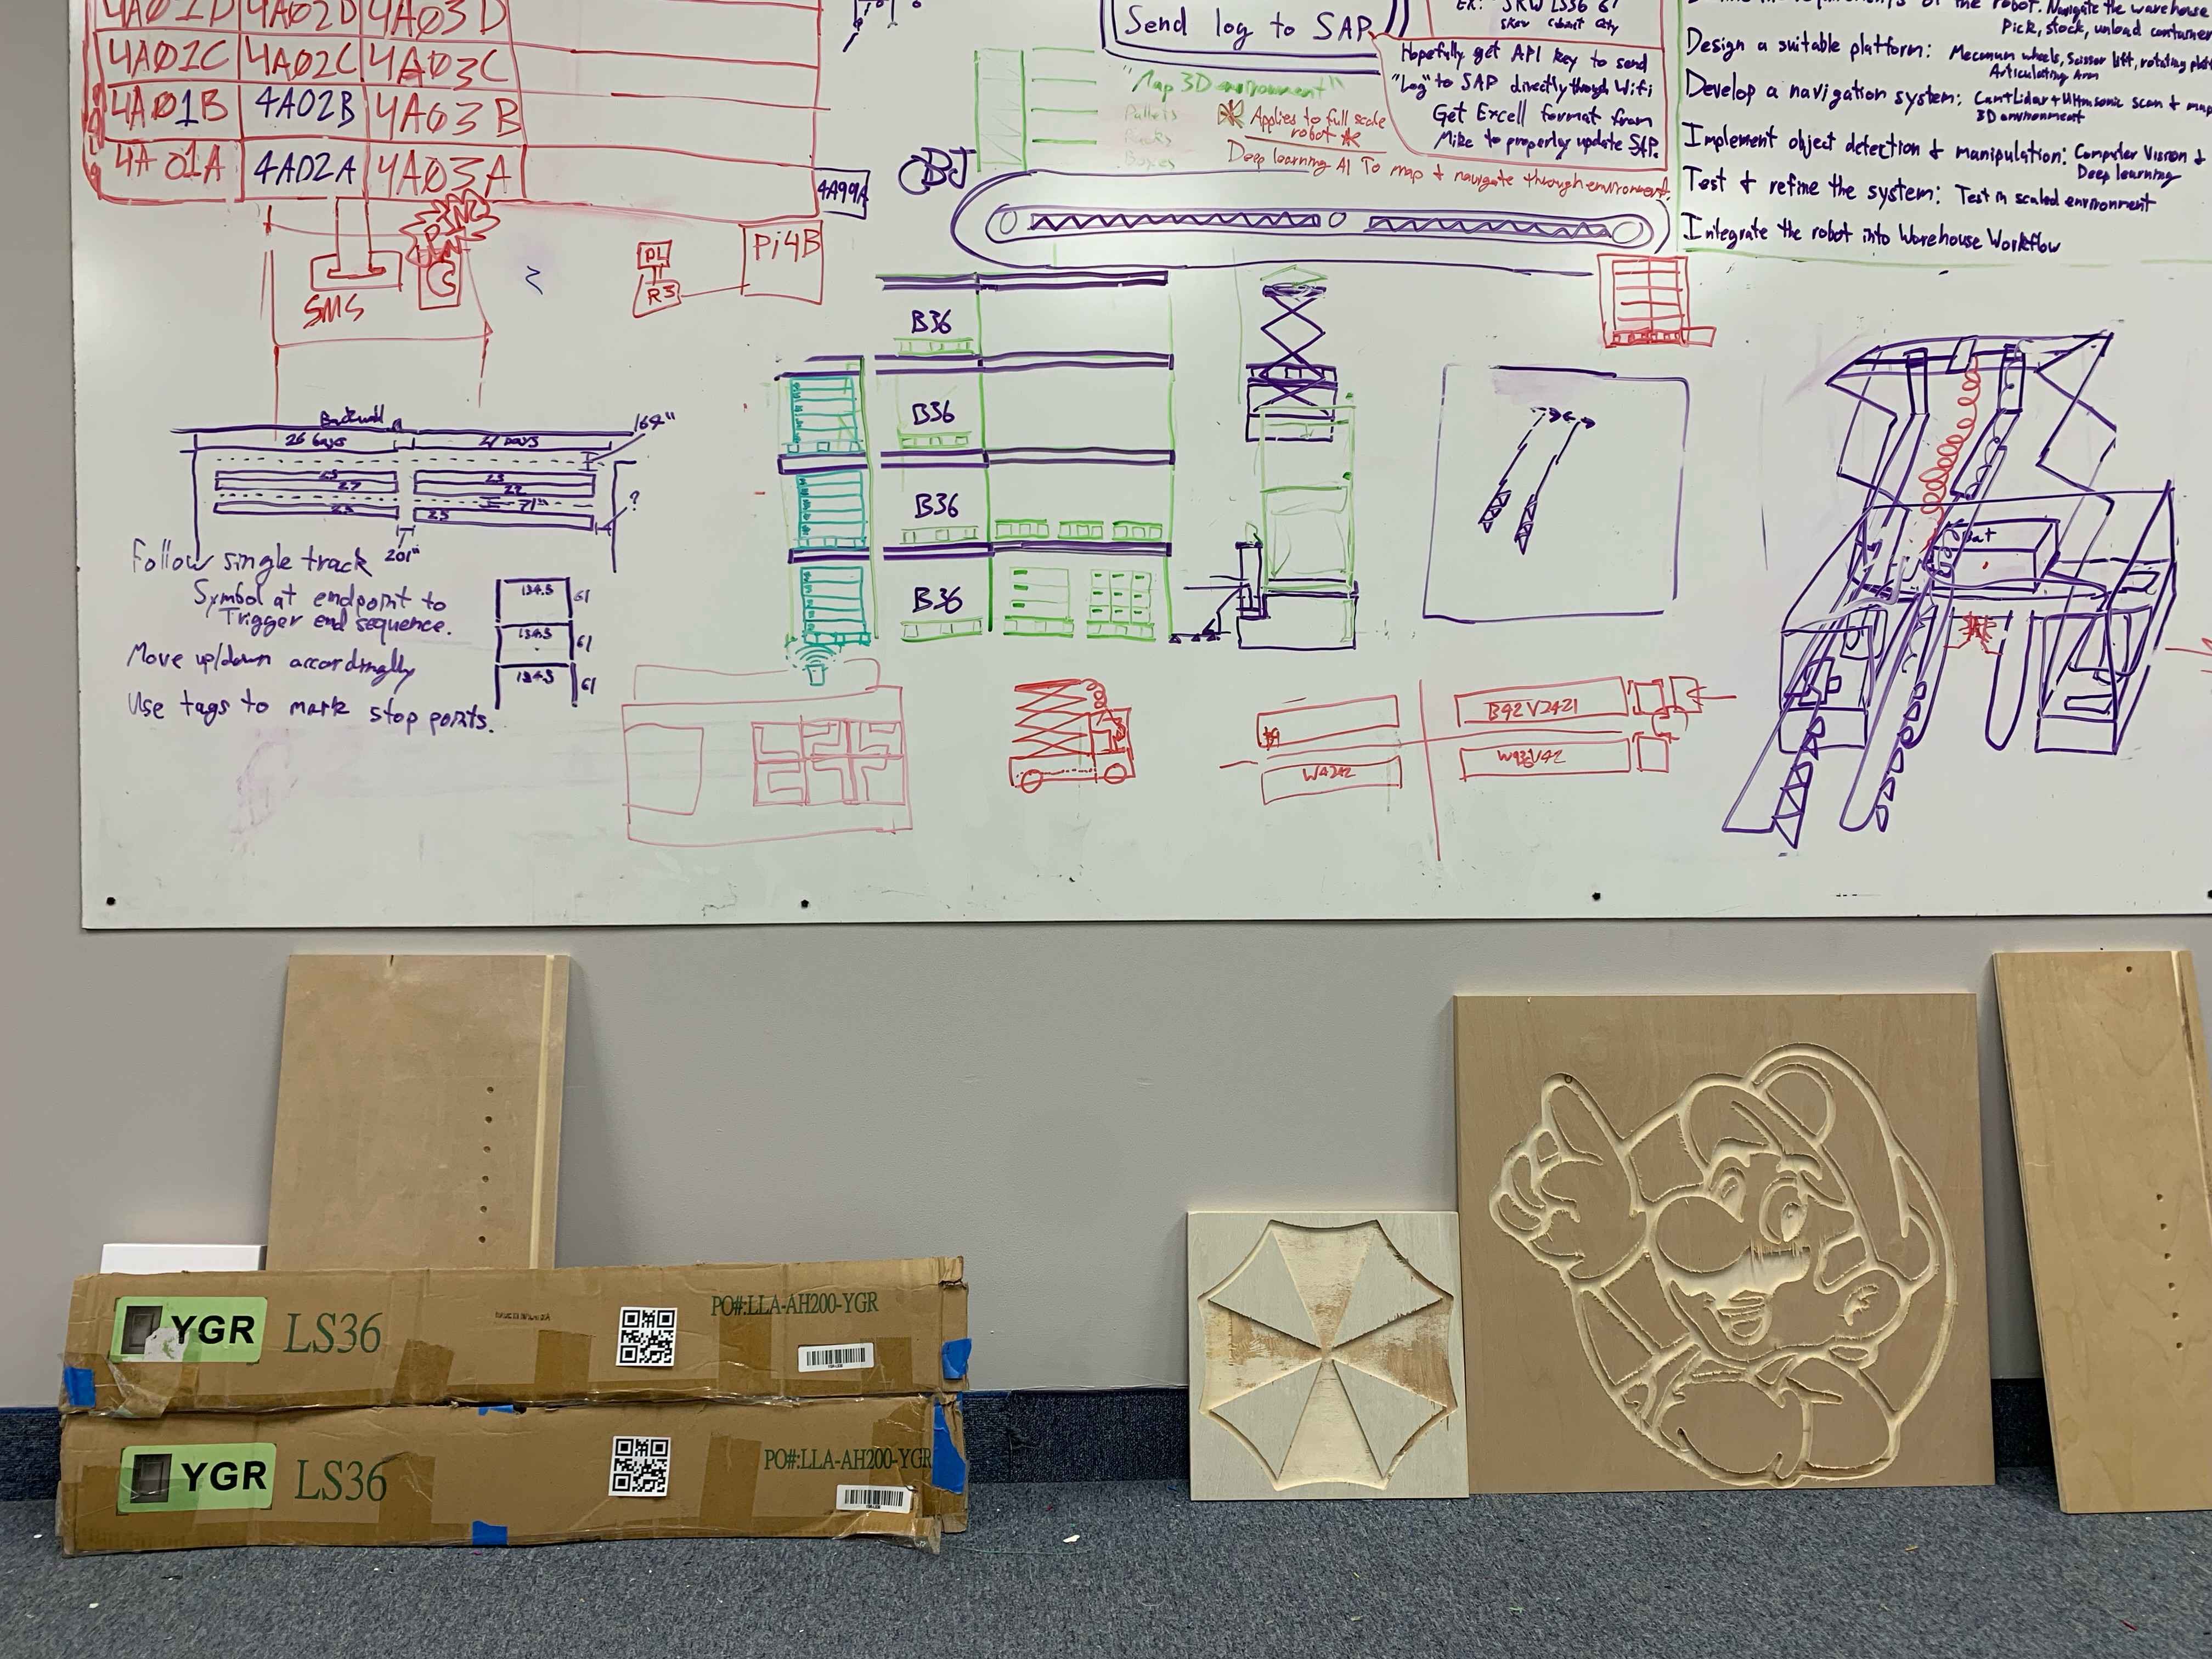 4A01D 4A02D 4A03D
4A01C 4A02C 4A03C
4A01B 4A02B 4A03B
4A01A 4A02A 4A03A
4A99A
SMS
R3
Pi4B
OBJ
Send log to SAP
EX: SKW LS36 61
Hopefully get API key to send
"Log" to SAP directly through Wifi
Get Excell format from
Mike to properly update SAP.
"Map 3D environment"
Pallets
Racks
Boxes
Applies to full scale
robot
Deep learning AI To map & navigate through environment.
of the robot. Navigate the warehouse
Pick, stock, unload container
Design a suitable platform: Mecanum wheels, Scissor lift, rotating plat
Articulating Arm
Develop a navigation system: Cam+Lidar+Ultrasonic scan & map
3D environment
Implement object detection & manipulation: Computer Vision &
Deep learning
Test & refine the system: Test in scaled environment
Integrate the robot into Warehouse Workflow
Backwall
26 bays
27 bays
25
27
25
25
22
71"
25
201"
?
Follow single track
Symbol at endpoint to
Trigger end sequence.
Move up/down accordingly
Use tags to mark stop points.
134.5 61
134.5 61
134.5 61
B36
B36
B36
B36
Bat
B42V2421
W4242
YGR LS36
PO#:LLA-AH200-YGR
YGR LS36
PO#:LLA-AH200-YGR